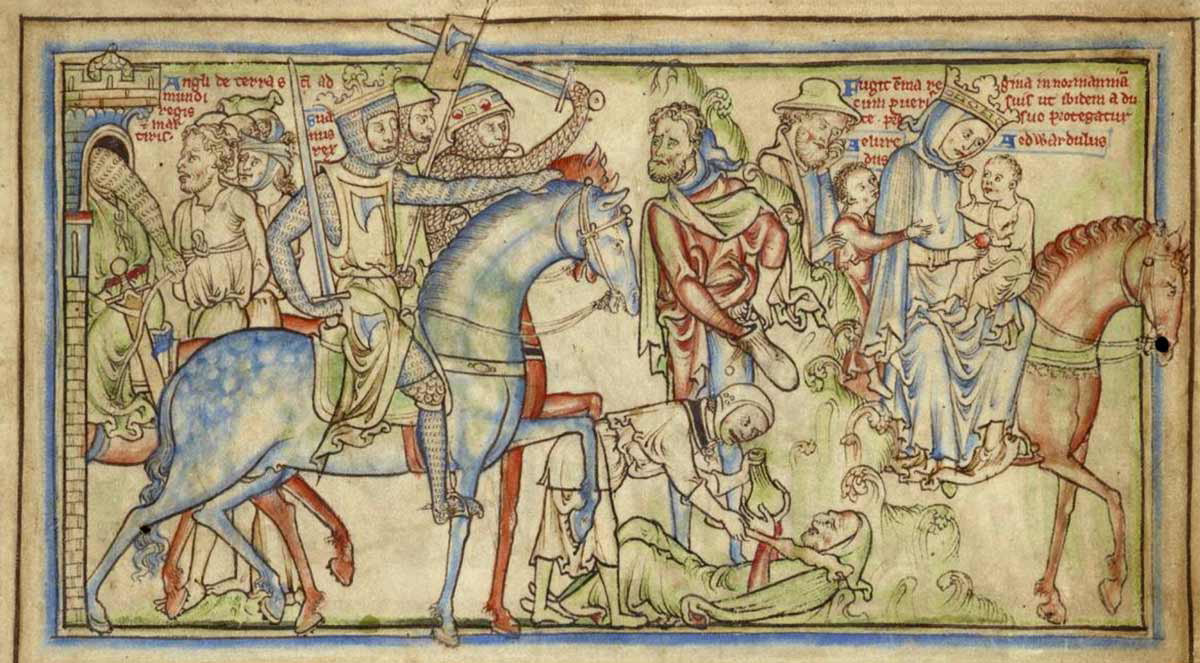 Angli de terra s
mundi
regis
mar
tiris.
Sua
nus
rex
Fugit ēma re gina in normanniā
cum pueri suis ut ibidem a du
ce. suo protegatur
Aelure
dus
Aedwardulus